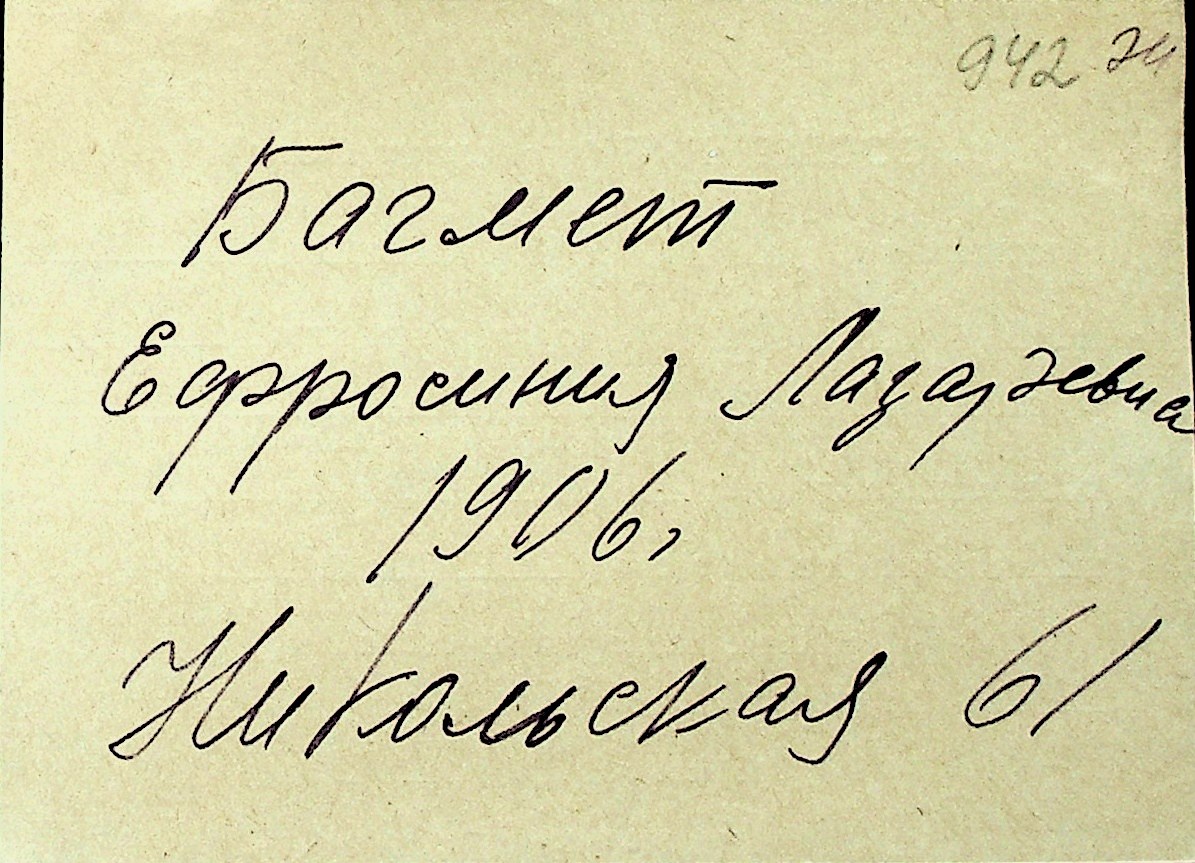 942 74
Багмет
Ефросиния Лазаревна
1906,
Никольская 61